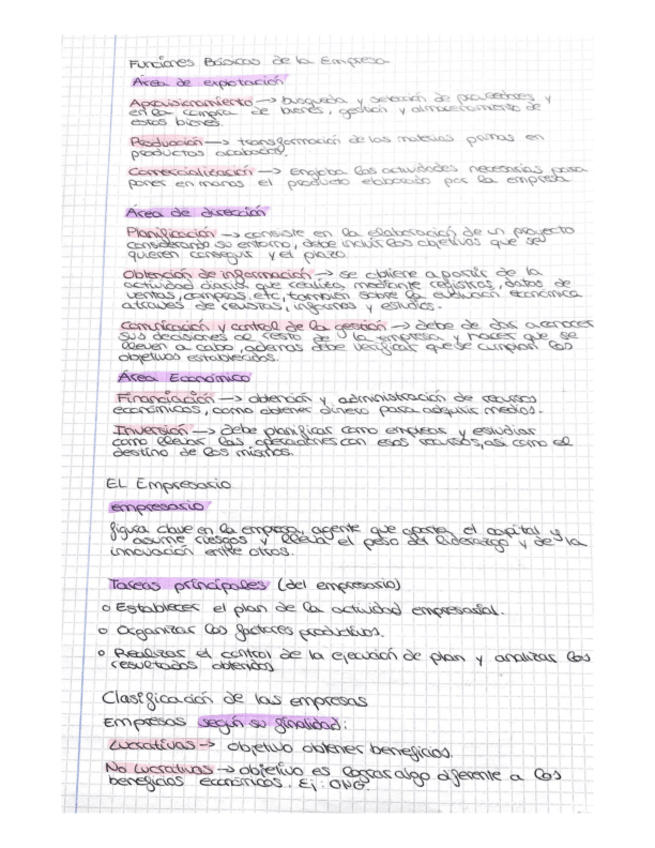 Funciones Básicas de la Empresa
Área de explotación
Aprovisionamiento → busqueda y selección de proveedores y
en la compra de bienes, gestión y almacenamiento de
estos bienes.
Producción → transformación de las materias primas en
productos acabados.
Comercialización → engloba las actividades necesarias para
poner en manos el producto elaborado por la empresa
Área de dirección
Planificación → consiste en la elaboración de un proyecto
considerando su entorno, debe incluir los objetivos que se
quieren conseguir y el plazo.
Obtención de información → se obtiene a partir de la
actividad diaria que realiza, mediante registros, datos de
ventas, compras, etc, también sobre la evolución económica
através de revistas, informes y estudios.
Comunicación y control de la gestión → debe de dar a conocer
sus decisiones al resto de la empresa y hacer que se
lleven a cabo, ademas debe verificar que se cumplan los
objetivos establecidos.
Área Económico
Financiación → obtención y administración de recursos
económicos, como obtener dinero para adquirir medios.
Inversión → debe planificar como emplear y estudiar
como llevar las operaciones con esos recursos, así como el
destino de los mismos.
EL Empresario
empresario
figura clave en la empresa, agente que aporta el capital y
asume riesgos y lleva el peso del liderazgo y de la
innovación entre otros.
Tareas principales (del empresario)
o Establecer el plan de la actividad empresarial.
o Organizar los factores productivos.
o Realizar el control de la ejecución de plan y analizar los
resultados obtenidos
Clasificación de las empresas
Empresas según su finalidad:
Lucrativas → objetivo obtener beneficios.
No Lucrativas → objetivo es lograr algo diferente a los
beneficios económicos. Ej: ONG.